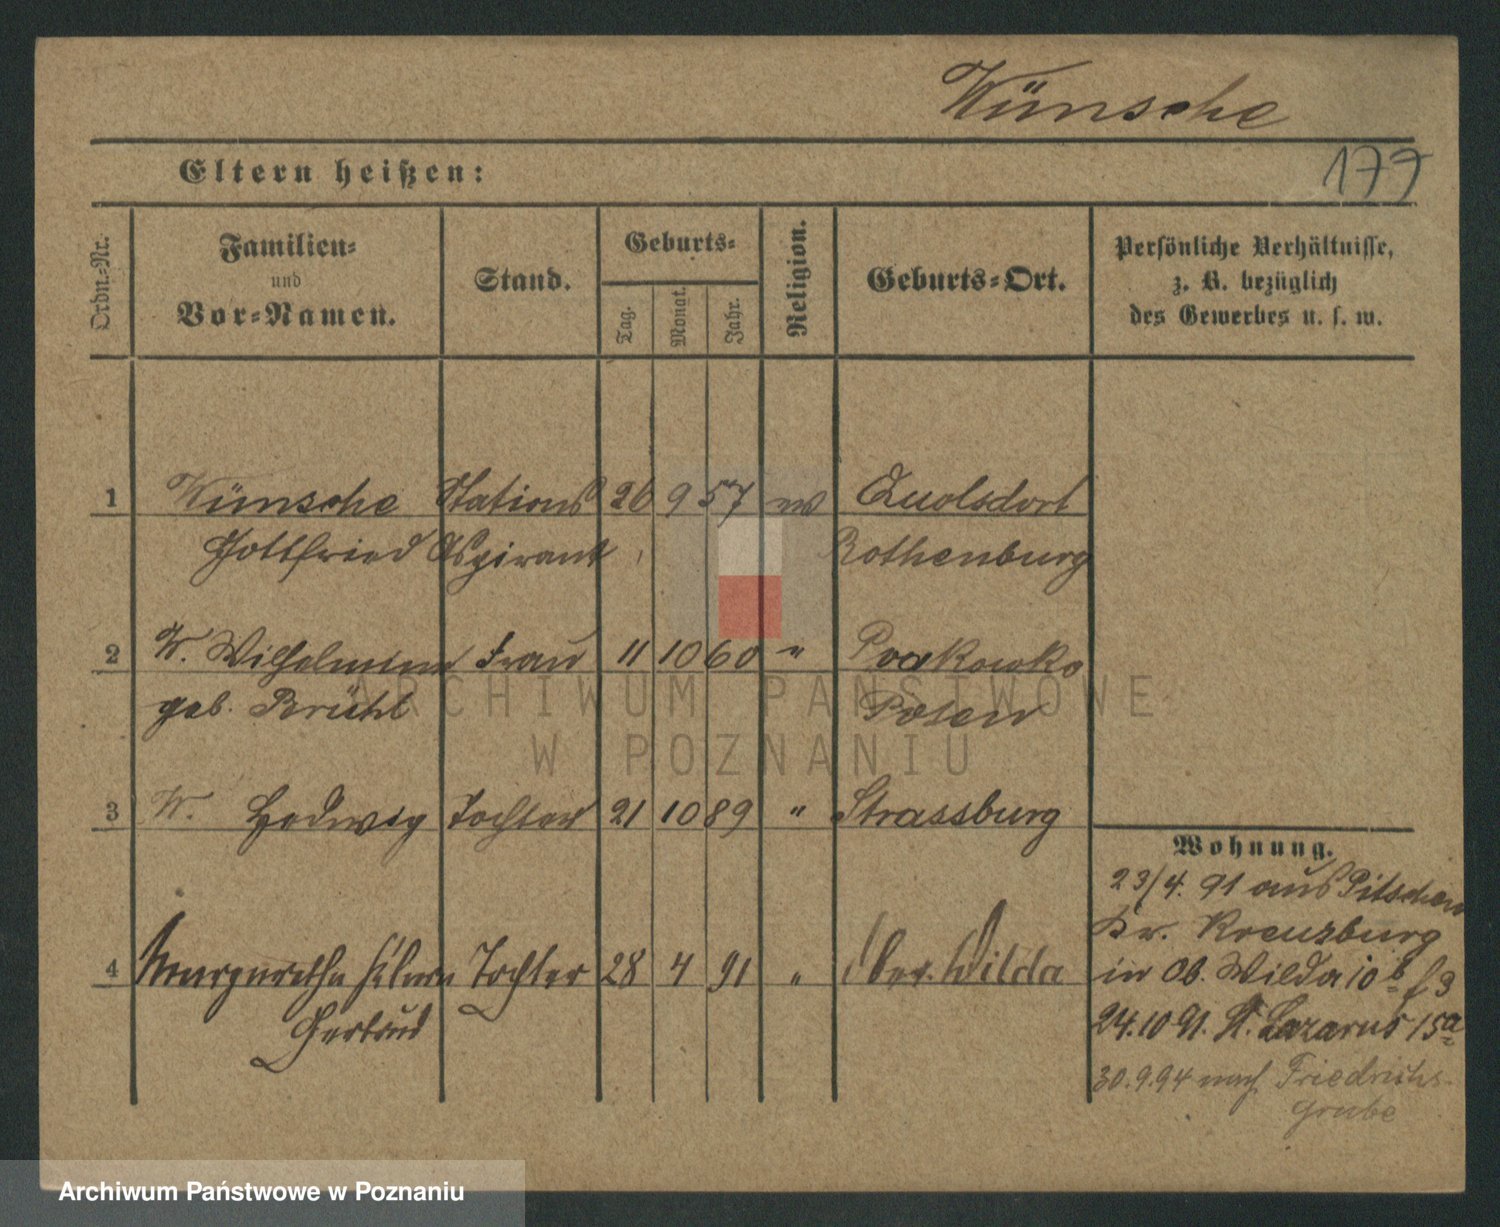 Wünsche
Eltern heißen:
177
Ordn.-Nr.
Familien-
und
Vor-Namen.
Stand.
Geburts-
Tag.
Monat.
Jahr.
Religion.
Geburts-Ort.
Persönliche Verhältnisse,
z. B. bezüglich
des Gewerbes u. s. w.
1 Wünsche Stations 26 9 57 ev Quolsdorf
Gottfried Aspirant Rothenburg
2 W. Wilhelmine Frau 11 10 60 "
geb. Brühl Posen
3 W. Hedwig Tochter 21 10 89 " Strassburg
4 Margarethe Tochter 28 4 91 " Ober. Wilda
Gertrud
Wohnung.
23/4. 91 aus Pitschen
Kr. Kreuzburg
in Ob. Wilda 10b
24.10 91. St. Lazarus 15a
30.9.94 nach Friedrichs-
grube
ARCHIWUM PAŃSTWOWE
W POZNANIU
Archiwum Państwowe w Poznaniu